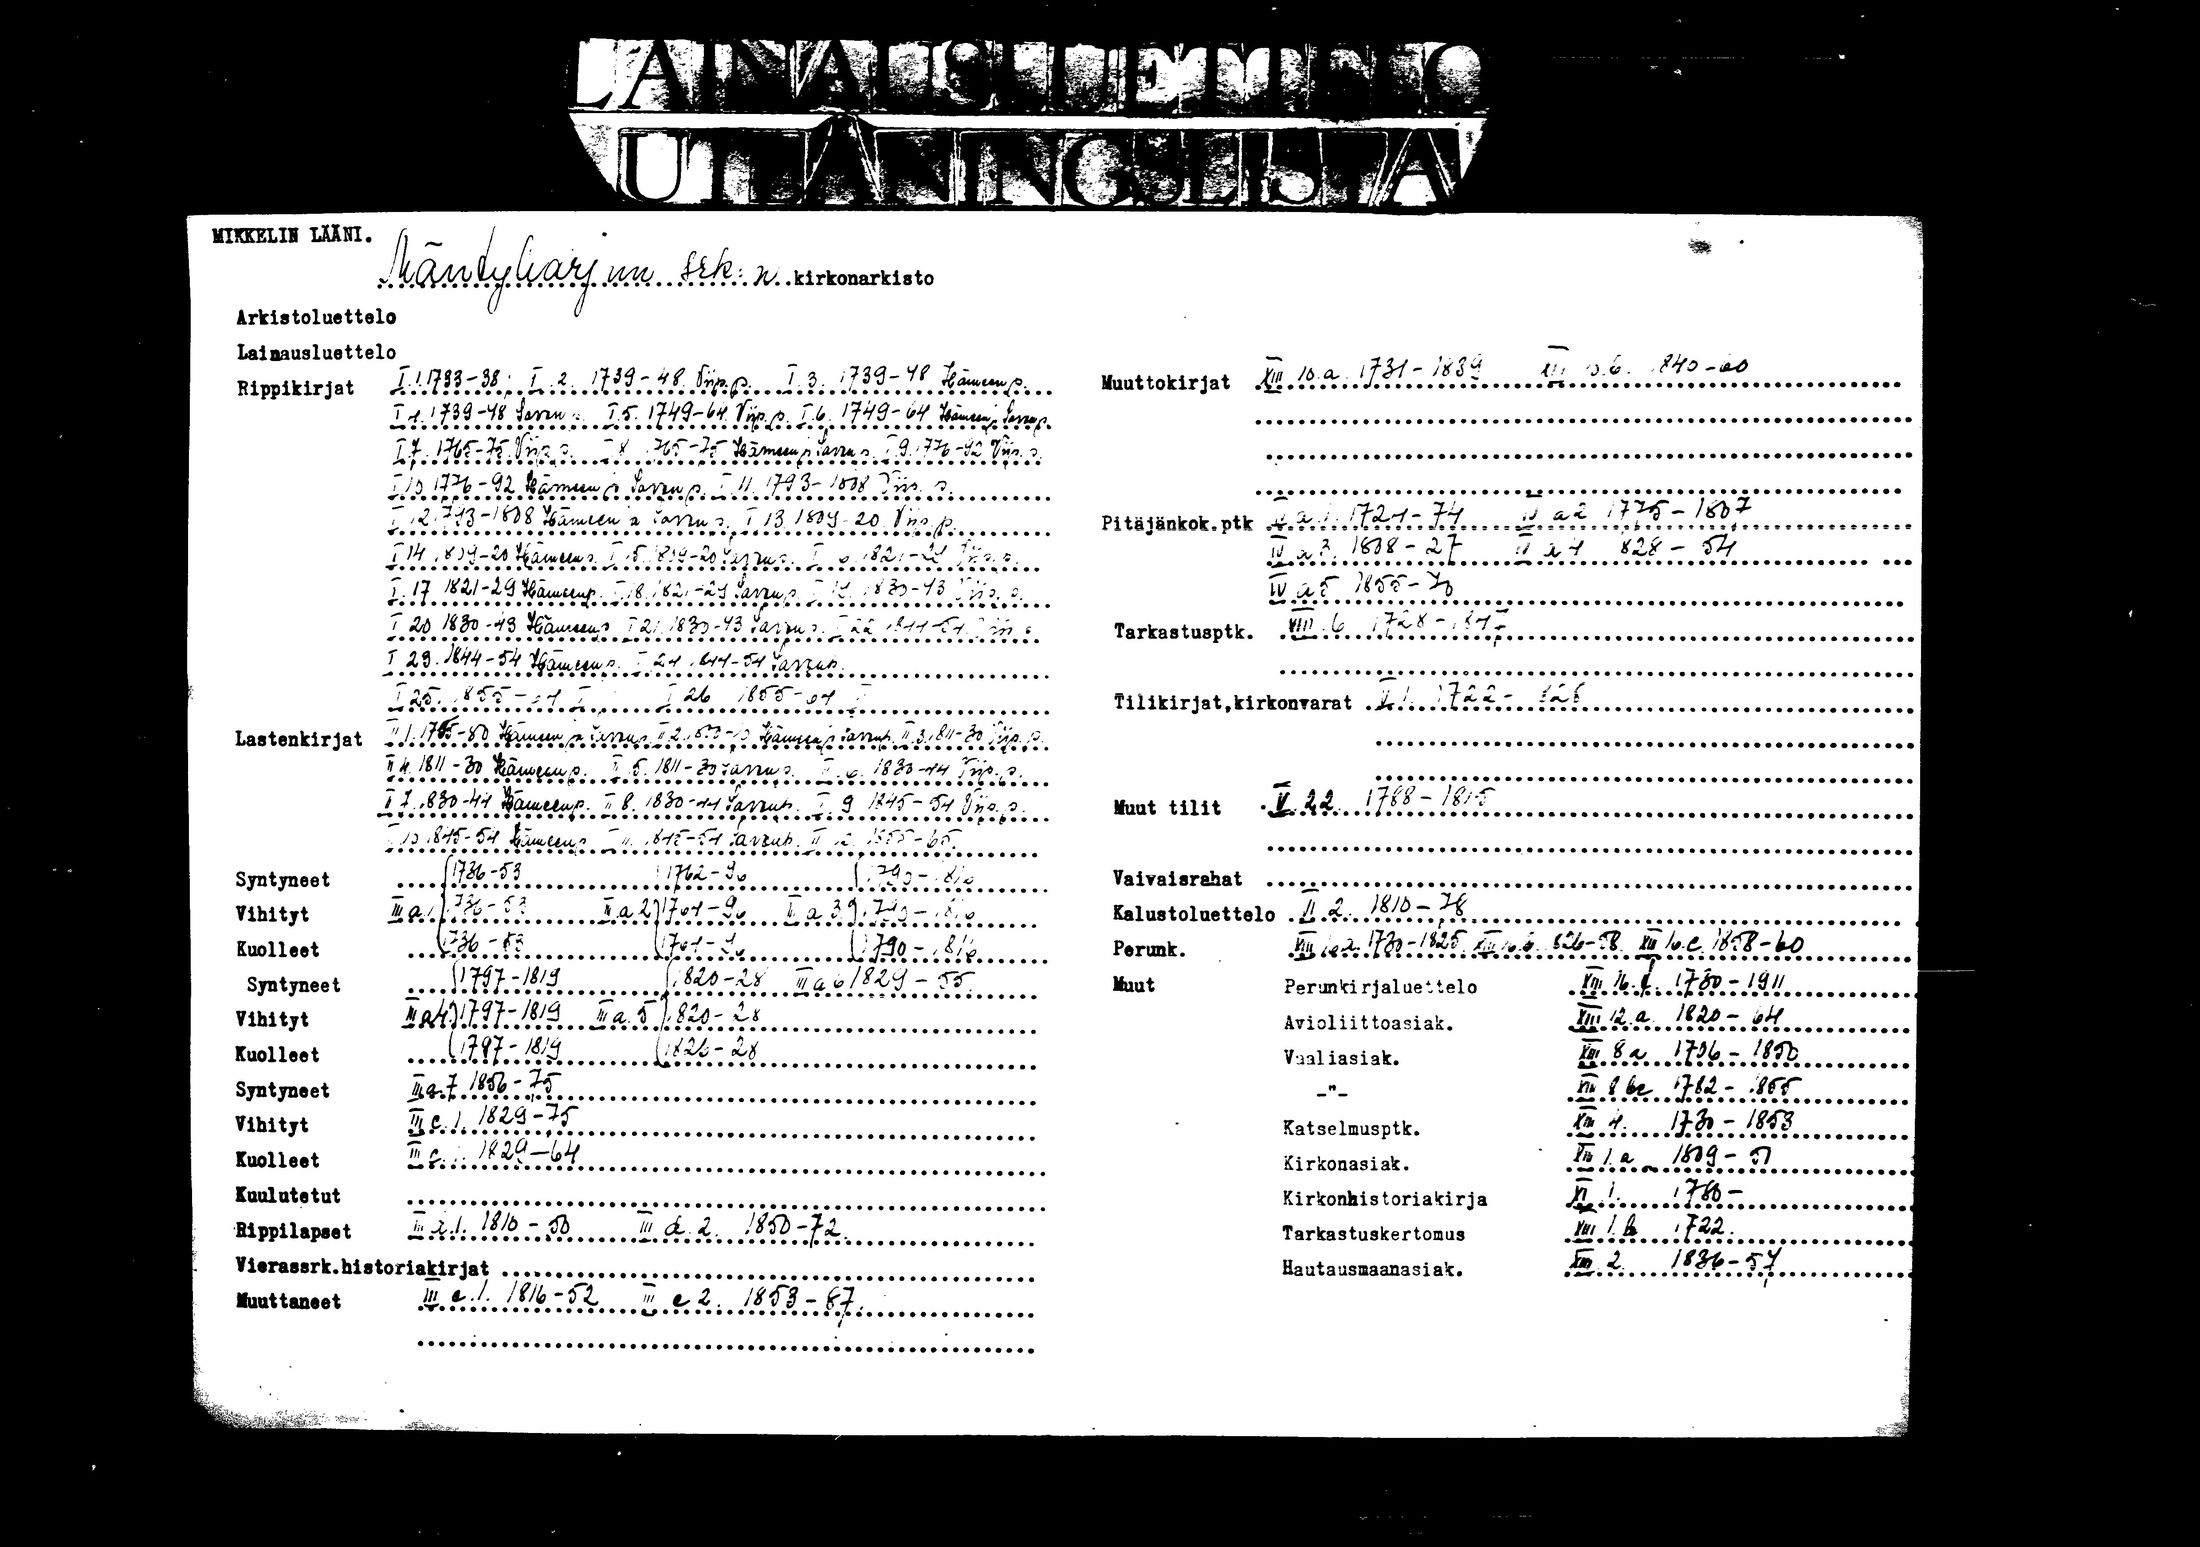 LAINAUSLUETTELO
UTLÅNINGSLISTA
MIKKELIN LÄÄNI.
Mäntyharjun srk:n kirkonarkisto
Arkistoluettelo
Lainausluettelo
Rippikirjat I.1. 1733-38; I.2. 1739-48 Viip.p. I.3. 1739-48 Hämeen p.
I.4. 1739-48 Savon p. I.5. 1749-64 Viip.p. I.6. 1749-64 Hämeen p. Savon p.
I.7. 1765-75 Viip.p. I 8 1765-75 Hämeen p. Savon p. I 9. 1776-92 Viip.p.
I 10 1776-92 Hämeen p. Savon p. I 11. 1793-1808 Viip.p.
I 12. 1793-1808 Hämeen ja Savon p. I 13. 1809-20. Viip.p.
I 14. 1809-20 Hämeen p. I 15. 1809-20 Savon p. 1821-29 Viip.p.
I. 17 1821-29 Hämeen p. I 18. 1821-29 Savon p. 1830-43 Viip.p.
I 20 1830-43 Hämeen p. I 21. 1830-43 Savon p. I 22 1844-54
I 23. 1844-54 Hämeen p. I 24 1844-54 Savon p.
I 25. 1855-64 I 26 1855-64
Lastenkirjat II 1. 1765-80 Hämeen ja Savon p. II 2. Hämeen p. Savon p. II 3. 1811-30 Viip.p.
II 4. 1811-30 Hämeen p. II 5. 1811-30 Savon p. II 6. 1830-44 Viip.p.
II 7. 1830-44 Hämeen p. II 8. 1830-44 Savon p. II 9 1845-54 Viip.p.
II 10 1845-54 Hämeen p. II 11. 1845-54 Savon p. II 12. 1855-65.
Syntyneet 1736-53 1762-90 1790-1816
Vihityt III a 1. 1736-53 III a 2 1761-90 III a 3 1790-1816
Kuolleet 1736-53 1761-90 1790-1816
Syntyneet 1797-1819 1820-28 III a 6 1829-55.
Vihityt III a 4. 1797-1819 III a 5 1820-28
Kuolleet 1797-1819 1820-28
Syntyneet III a 7 1856-75
Vihityt III c. 1. 1829-75
Kuolleet 1829-64
Kuulutetut
Rippilapset 1. 1810-50 III d. 2. 1850-72.
Vierassrk.historiakirjat
Muuttaneet III e. 1. 1816-52 III e 2. 1853-87.
Muuttokirjat XIII 10.a. 1731-1839 XIII 10.b. 1840-60
Pitäjänkok.ptk IV a 1. 1724-74 IV a 2 1775-1807
IV a 3. 1808-27 IV a 4 1828-54
IV a 5 1855-70
Tarkastusptk. VIII. 6 1728-
Tilikirjat,kirkonvarat V. 1. 1722-
Muut tilit V. 22. 1788-1815
Vaivaisrahat
Kalustoluettelo II. 2. 1810-78
Perunk. XIII 16.a. 1730-1825. XIII 16.b. 1826-58. XIII 16.c. 1858-60
Muut Perunkirjaluettelo XIII 16.d. 1730-1911
Avioliittoasiak. XIII 12.a. 1820-64
Vaaliasiak. XIII 8 a 1736-1850
-"- XIII 8 bc 1782-1855
Katselmusptk. XIII 4. 1730-1853
Kirkonasiak. XIII 1.a 1809-51
Kirkonhistoriakirja XI 1. 1780-
Tarkastuskertomus XIII 1.b 1722.
Hautausmaanasiak. XIII 2. 1836-57